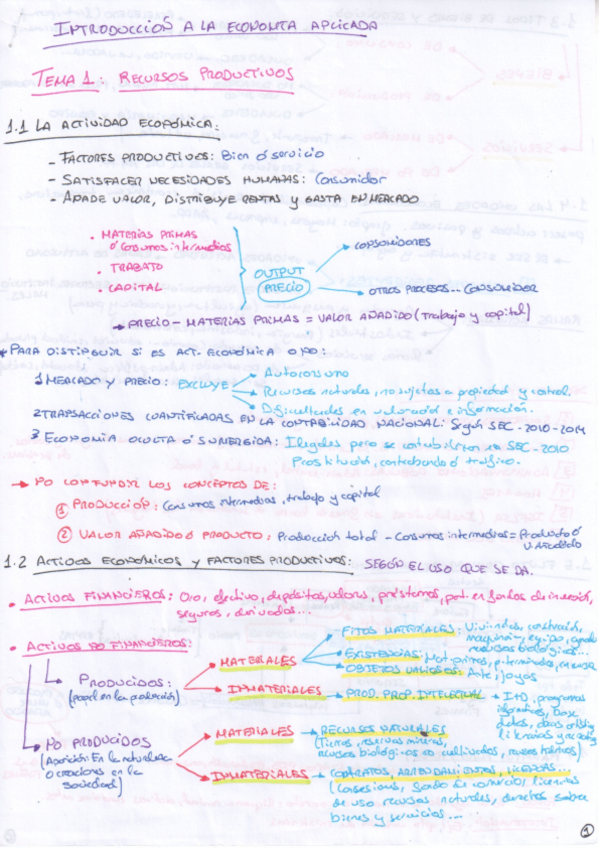 INTRODUCCIÓN A LA ECONOMÍA APLICADA
TEMA 1: RECURSOS PRODUCTIVOS
1.1 LA ACTIVIDAD ECONÓMICA:
- FACTORES PRODUCTIVOS: Bien ó servicio
- SATISFACER NECESIDADES HUMANAS: Consumidor
- AÑADE VALOR, DISTRIBUYE RENTAS Y GASTA EN MERCADO
• MATERIAS PRIMAS
ó Consumos intermedios
• TRABAJO
• CAPITAL
OUTPUT
PRECIO
CONSUMIDORES
OTROS PROCESOS... CONSUMIDOR
→ PRECIO - MATERIAS PRIMAS = VALOR AÑADIDO (trabajo y capital)
PARA DISTINGUIR SI ES ACT. ECONÓMICA O NO:
1 MERCADO Y PRECIO: EXCLUYE
Autoconsumo
Recursos naturales, no sujetos a propiedad y control.
Dificultades en valoración e información.
2 TRANSACCIONES CUANTIFICADAS EN LA CONTABILIDAD NACIONAL: Según SEC-2010-2014
3 ECONOMÍA OCULTA Ó SUMERGIDA: Ilegales pero se contabilizan en SEC-2010
Prostitución, contrabando ó tráfico.
→ NO CONFUNDIR LOS CONCEPTOS DE:
① PRODUCCIÓN: Consumos intermedios, trabajo y capital
② VALOR AÑADIDO Ó PRODUCTO: Producción total - Consumos intermedios = Producto ó
V. Añadido
1.2 ACTIVOS ECONÓMICOS Y FACTORES PRODUCTIVOS: SEGÚN EL USO QUE SE DA.
• ACTIVOS FINANCIEROS: Oro, efectivo, depósitos, valores, préstamos, part. en fondos de inversión,
seguros, derivados...
• ACTIVOS NO FINANCIEROS:
PRODUCIDOS:
(papel en la producción)
MATERIALES
FIJOS MATERIALES: Viviendas, construcción,
maquinaria, equipo,
recursos biológicos...
EXISTENCIAS: Mat. primas, p. terminados, en curso
OBJETOS VALIOSOS: Arte, joyas
INMATERIALES → PROD. PROP. INTELECTUAL → I+D, programas
informáticos, base
datos, obras
literarias y
NO PRODUCIDOS
(Aparición: En la naturaleza
o creaciones en la
sociedad)
MATERIALES → RECURSOS NATURALES
(Tierras, reservas minerales,
recursos biológicos no cultivados, recursos hídricos)
INMATERIALES → CONTRATOS, ARRENDAMIENTOS, LICENCIAS...
(Concesiones, fondo de comercio, licencias
de uso recursos naturales, derechos sobre
bienes y servicios...
①